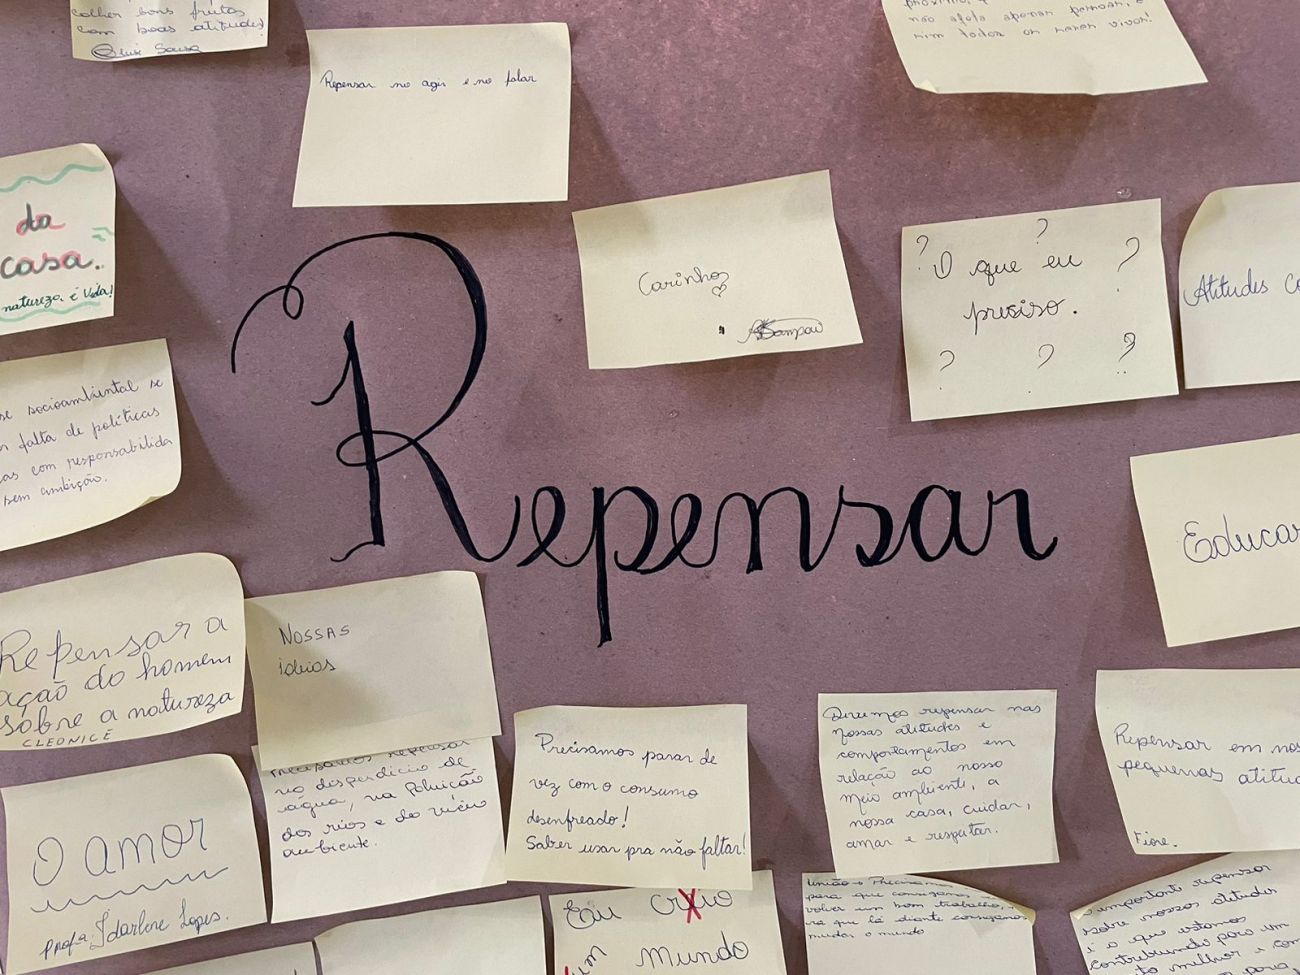 colher bons frutos
com boas atitudes!
Sousa
Repensar no agir e no falar
não afeta apenas pessoas, e
sim todos os seres vivos!
da
casa.
natureza é Vida!
Carinhos
Sampaio
? ? ?
O que eu
preciso.
? ? ?
Atitudes
socioambiental se
falta de políticas
com responsabilida
sem ambição.
Repensar
Educar
Repensar a
ação do homem
sobre a natureza
CLEONICE
NOSSAS
ideias
repensar
no desperdício de
água, na Poluição
dos rios e do
ambiente.
Precisamos parar de
vez com o consumo
desenfreado!
Saber usar pra não faltar!
Devemos repensar nas
nossas atitudes e
comportamentos em
relação ao nosso
meio ambiente, a
nossa casa, cuidar,
amar e respeitar.
Repensar em
pequenas
Fiore.
O amor
Profª Idarlene Lopes.
Eu
um Mundo
para que consigamos
volver um bom trabalho,
que lá diante consigamos
mudar o mundo
importante repensar
sobre nossas atitudes
é o que estamos
contribuindo para um
melhor e